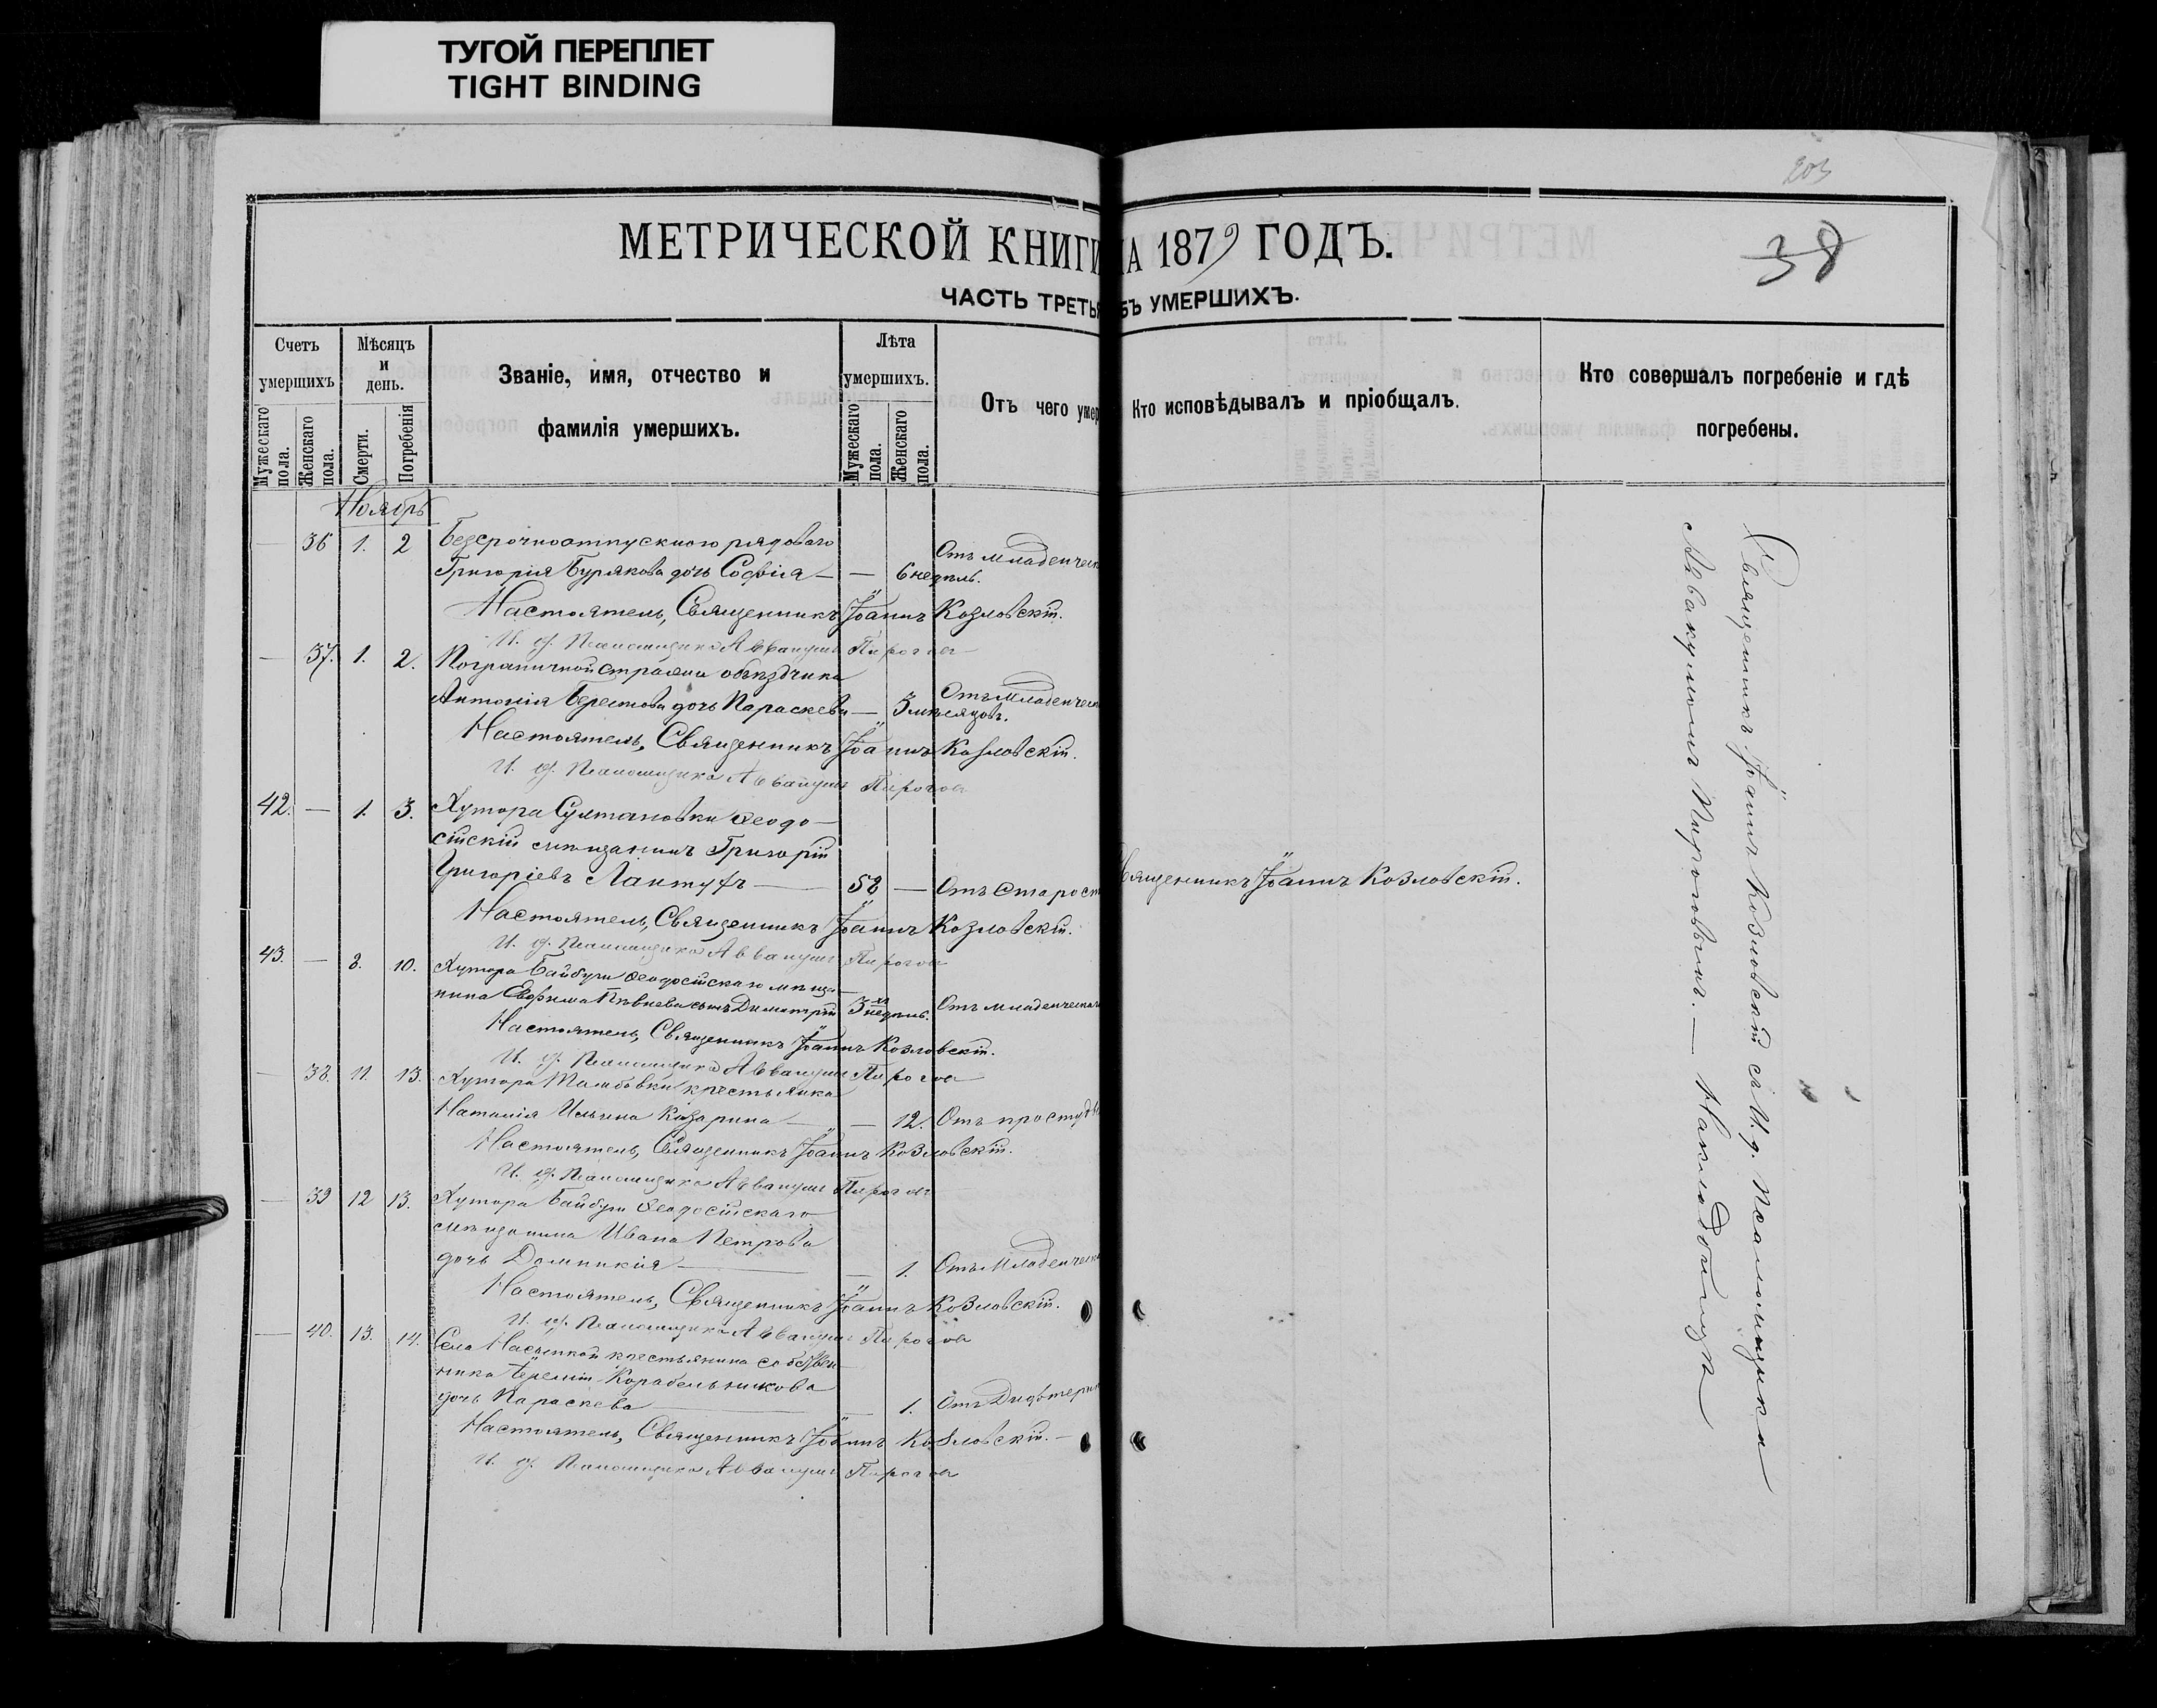 ТУГОЙ ПЕРЕПЛЕТ
TIGHT BINDING
203
38
МЕТРИЧЕСКОЙ КНИГИ НА 1879 ГОДЪ.
ЧАСТЬ ТРЕТЬЯ ОБЪ УМЕРШИХЪ.
Счетъ умершихъ
Мужескаго пола.
Женскаго пола.
Мѣсяцъ и день.
Смерти.
Погребенія
Званіе, имя, отчество и
фамилія умершихъ.
Лѣта умершихъ.
Мужескаго пола.
Женскаго пола.
Отъ чего умер
Кто исповѣдывалъ и пріобщалъ.
Кто совершалъ погребеніе и гдѣ
погребены.
Ноябрь
— 36 1. 2 Безсрочноотпускного рядоваго
Григорія Бурякова дочь Софія — — 6 недѣль. Отъ младенческ
Настоятель, Священникъ Іоаннъ Козловскій.
И. д. Псаломщика Аввакумъ Пирогов
— 37. 1. 2. Пограничной стражи объѣздчика
Антонія Берестова дочь Параскева — 3 мѣсяцовъ. Отъ Младенческ
Настоятель, Священникъ Іоаннъ Козловскій.
И. д. Псаломщика Аввакумъ Пирогов
42. — 1. 3. Хутора Султановки Ѳеодо-
сійскій мѣщанинъ Григорій
Григоріевъ Лантухъ — 58 — Отъ Старост
Священникъ Іоаннъ Козловскій.
Настоятель, Священникъ Іоаннъ Козловскій.
И. д. Псаломщика Аввакумъ Пирогов
43. — 8. 10. Хутора Байбуги Ѳеодосійскаго мѣща-
нина Евфима Пѣвнева сынъ Димитрій 3хъ недѣль. Отъ младенческаг
Настоятель, Священникъ Іоаннъ Козловскій.
И. д. Псаломщика Аввакумъ Пирогов
— 38. 11. 13. Хутора Тамбовки крестьянка
Наталія Ильина Казарина — — 12. Отъ простуды
Настоятель, Священникъ Іоаннъ Козловскій.
И. д. Псаломщика Аввакумъ Пирогов
— 39 12 13. Хутора Байбуги Ѳеодосійскаго
мѣщанина Ивана Петрова
дочь Домникія — — 1. Отъ Младенческ
Настоятель, Священникъ Іоаннъ Козловскій.
И. д. Псаломщика Аввакумъ Пирогов
— 40. 13. 14. Села Насыпкой крестьянина собствен-
ника Ѣремія Корабельникова
дочь Параскева — — 1. Отъ Дифтерит
Настоятель, Священникъ Іоаннъ Козловскій. —
И. д. Псаломщика Аввакумъ Пирогов
Священникъ Іоаннъ Козловскій съ И. д. Псаломщика
Аввакумомъ Пироговымъ. — На кладбищѣ